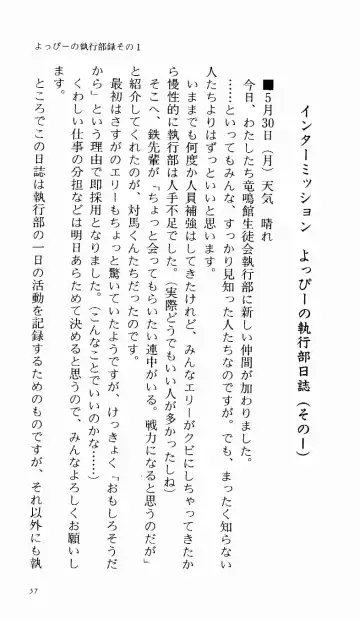 よっぴーの執行部録その１
インターミッション　よっぴーの執行部日誌（その一）
■５月30日（月）天気　晴れ
　今日、わたしたち竜鳴館生徒会執行部に新しい仲間が加わりました。
　……といってもみんな、すっかり見知った人たちなのですが。でも、まったく知らない
人たちよりはずっといいと思います。
　いままでも何度か人員補強はしてきたけれど、みんなエリーがクビにしちゃってきたか
ら慢性的に執行部は人手不足でした。（実際どうでもいい人が多かったしね）
　そこへ、鉄先輩が「ちょっと会ってもらいたい連中がいる。戦力になると思うのだが」
と紹介してくれたのが、対馬くんたちだったのです。
　最初はさすがのエリーもちょっと驚いていたようですが、けっきょく「おもしろそうだ
から」という理由で即採用となりました。（こんなことでいいのかな……）
　くわしい仕事の分担などは明日あらためて決めると思うので、みんなよろしくお願いし
ます。
　ところでこの日誌は執行部の一日の活動を記録するためのものですが、それ以外にも執
57